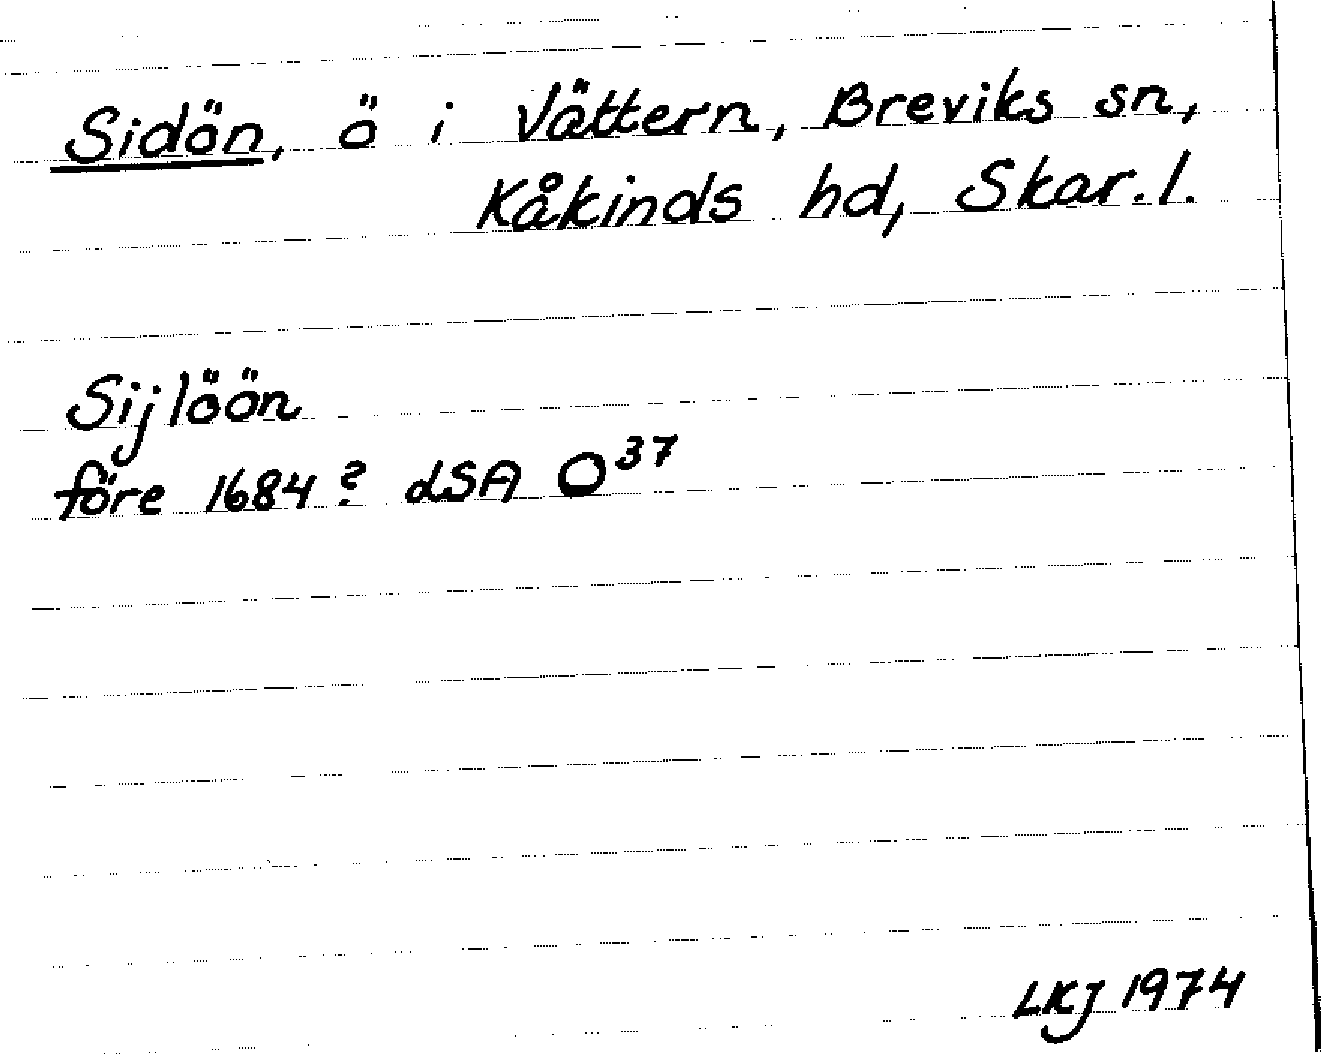 Sidön, ö i Vättern, Breviks sn,
Kåkinds hd, Skar. l.
Sijlöön
före 1684? LSA O37
LKJ 1974